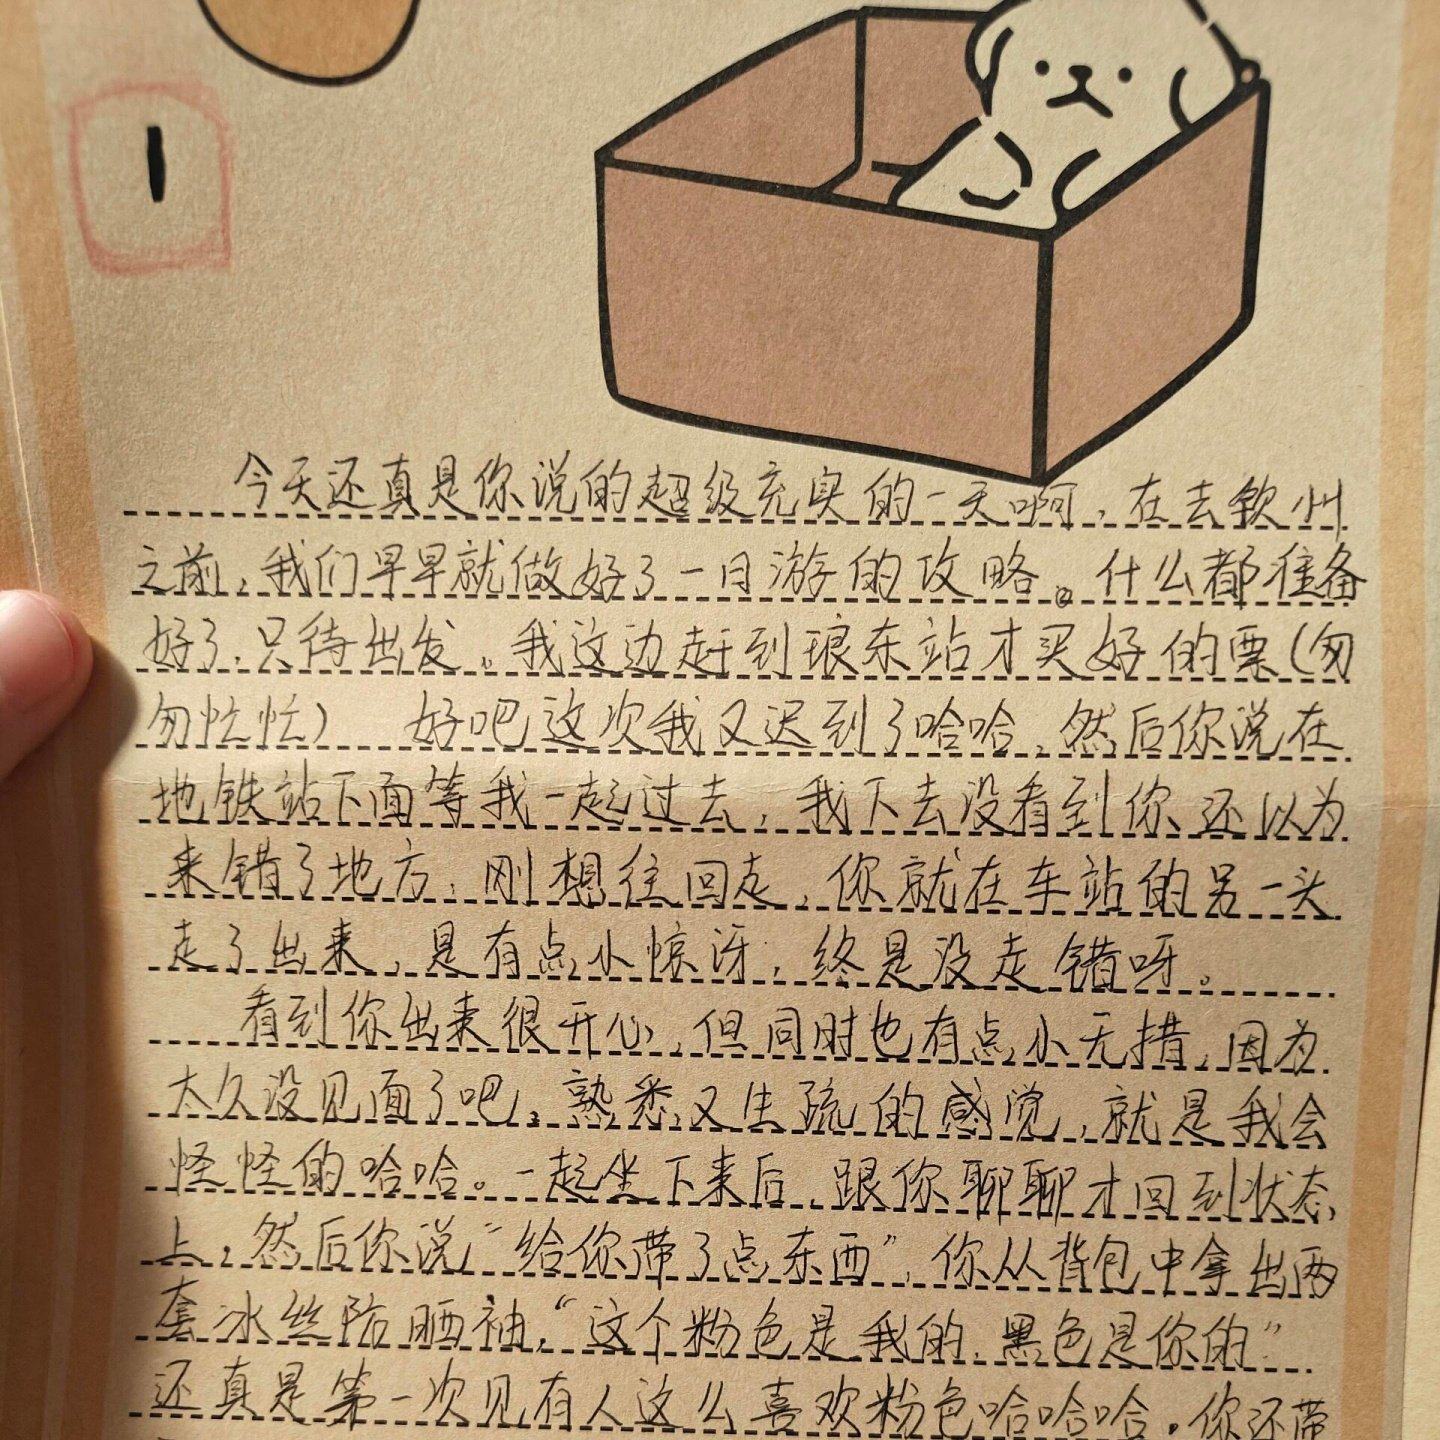 1
今天还真是你说的超级充实的一天啊，在去钦州
之前，我们早早就做好了一日游的攻略。什么都准备
好了，只待出发。我这边赶到琅东站才买好的票(匆
匆忙忙) 好吧这次我又迟到了哈哈，然后你说在
地铁站下面等我一起过去，我下去没看到你还以为
来错了地方，刚想往回走，你就在车站的另一头
走了出来，是有点小惊讶，终是没走错呀。
看到你出来很开心，但同时也有点小无措，因为
太久没见面了吧，熟悉又生疏的感觉，就是我会
怪怪的哈哈。一起坐下来后，跟你聊聊才回到状态
上，然后你说“给你带了点东西”，你从背包中拿出两
套冰丝防晒袖，“这个粉色是我的，黑色是你的”
还真是第一次见有人这么喜欢粉色哈哈哈，你还带